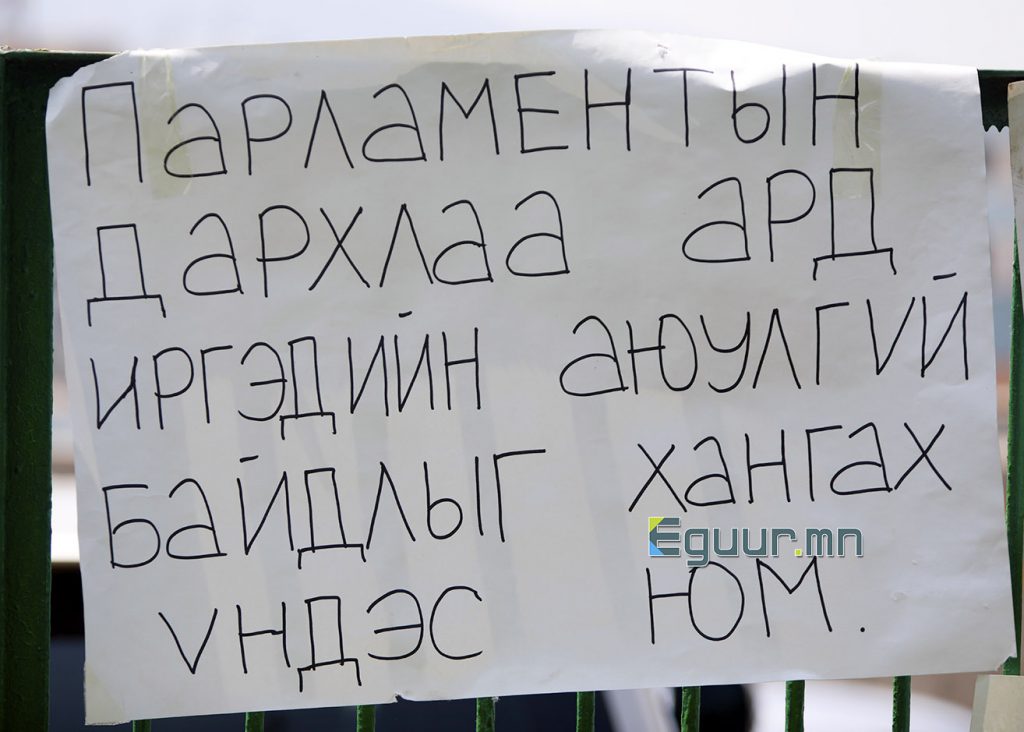 Парламентын
дархлаа ард
иргэдийн аюулгvй
байдлыг хангах
Eguur.mn
vндэс юм.